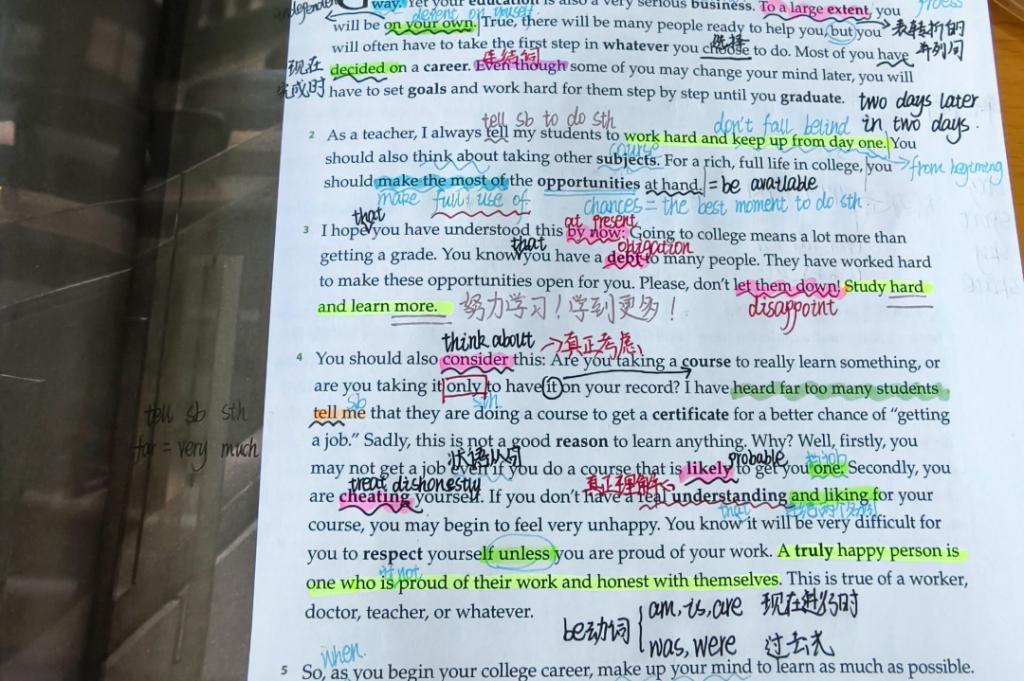 way. Yet your education is also a very serious business. To a large extent, you
depend on yourself
will be on your own. True, there will be many people ready to help you, but you
表转折的
并列词
选择
will often have to take the first step in whatever you choose to do. Most of you have
现在
完成时
连结词
decided on a career. Even though some of you may change your mind later, you will
have to set goals and work hard for them step by step until you graduate.
two days later
in two days.
tell sb to do sth
don't fall behind
2 As a teacher, I always tell my students to work hard and keep up from day one. You
course
should also think about taking other subjects. For a rich, full life in college, you
from beginning
should make the most of the opportunities at hand. = be available
make full use of
chances = the best moment to do sth
that
at present
3 I hope you have understood this by now: Going to college means a lot more than
that
obigation
getting a grade. You know you have a debt to many people. They have worked hard
to make these opportunities open for you. Please, don't let them down! Study hard
and learn more. 努力学习！学到更多！
disappoint
think about → 真正考虑
4 You should also consider this: Are you taking a course to really learn something, or
are you taking it only to have it on your record? I have heard far too many students
sb sth
tell me that they are doing a course to get a certificate for a better chance of "getting
tell sb sth
far = very much
a job." Sadly, this is not a good reason to learn anything. Why? Well, firstly, you
状语从句
probable
may not get a job even if you do a course that is likely to get you one. Secondly, you
treat dishonestly
真正理解
are cheating yourself. If you don't have a real understanding and liking for your
that
course, you may begin to feel very unhappy. You know it will be very difficult for
you to respect yourself unless you are proud of your work. A truly happy person is
if not
one who is proud of their work and honest with themselves. This is true of a worker,
doctor, teacher, or whatever.
be动词
am, is, are 现在进行时
was, were 过去
when
5 So, as you begin your college career, make up your mind to learn as much as possible.